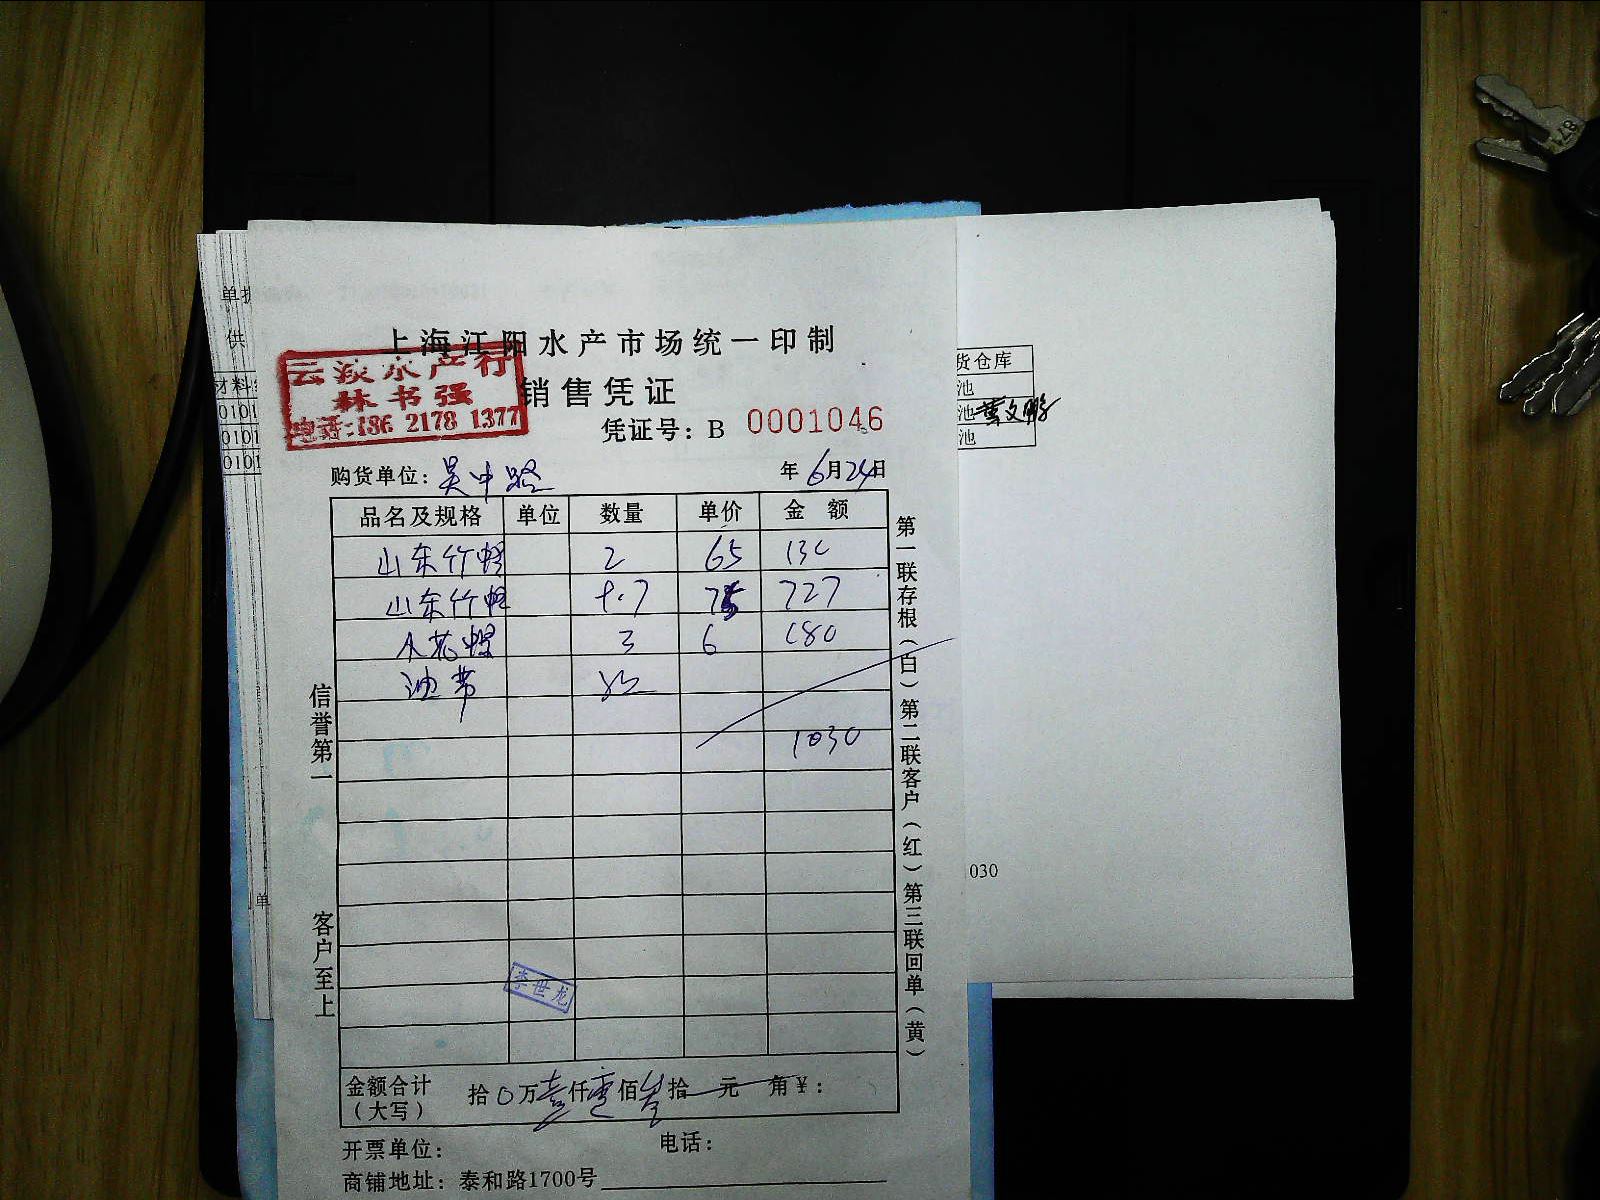 单据
供
材料
0101
0101
0101
上海江阳水产市场统一印制
云淡水产行
林书强
电话:186 2178 1377
销售凭证
凭证号: B 0001046
购货单位: 吴中路 年6月24日
品名及规格 单位 数量 单价 金额
山东竹蛏 2 65 130
山东竹蛏 9.7 75 727
3 6 180
油带
1030
信誉第一
客户至上
第一联存根(白)第二联客户(红)第三联回单(黄)
李世龙
金额合计(大写) 拾0万壹仟零佰叁拾 元 角¥:
开票单位: 电话:
商铺地址: 泰和路1700号
货仓库
池
池 叶文鹏
池
030
单
871